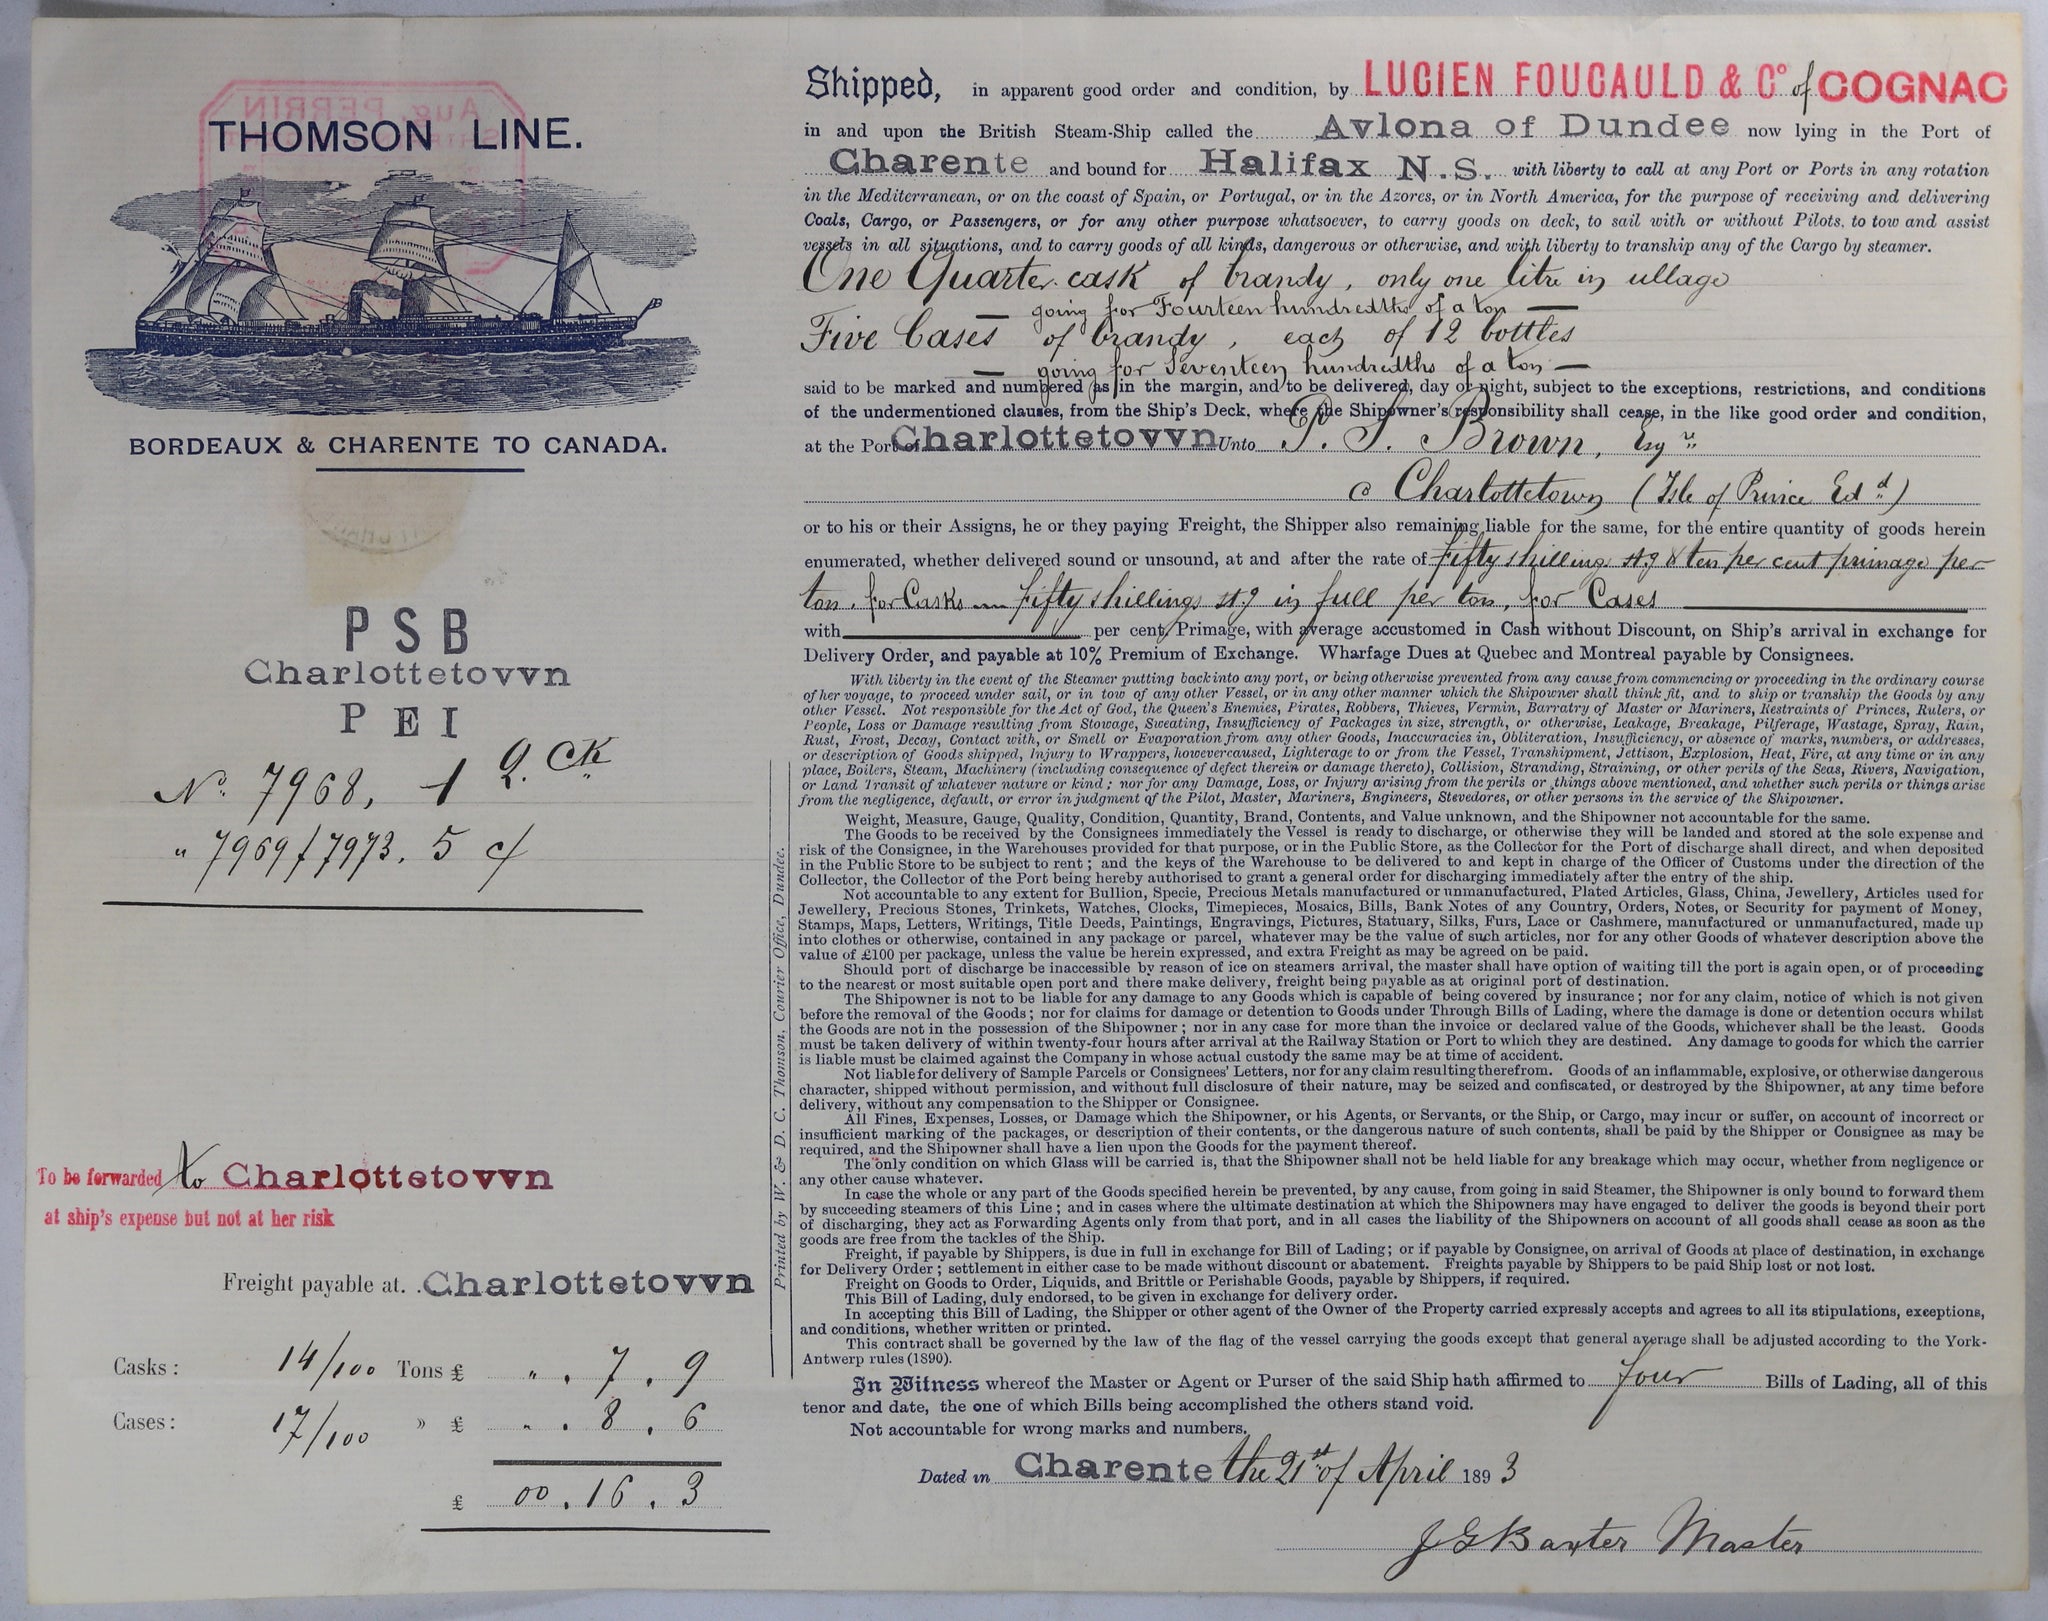 THOMSON LINE.
BORDEAUX & CHARENTE TO CANADA.
P S B
Charlottetovvn
P E I
No. 7968, 1 Q. CK
" 7969/7973. 5 c/
To be forwarded to Charlottetovvn
at ship's expense but not at her risk
Freight payable at. . Charlottetovvn
Casks: 14/100 Tons £ " . 7 . 9
Cases: 17/100 " £ " . 8 . 6
£ 00 . 16 . 3
Printed by W. & D. C. Thomson, Courier Office, Dundee.
Shipped, in apparent good order and condition, by LUCIEN FOUCAULD & Co of COGNAC
in and upon the British Steam-Ship called the Avlona of Dundee now lying in the Port of
Charente and bound for Halifax N.S. with liberty to call at any Port or Ports in any rotation
in the Mediterranean, or on the coast of Spain, or Portugal, or in the Azores, or in North America, for the purpose of receiving and delivering
Coals, Cargo, or Passengers, or for any other purpose whatsoever, to carry goods on deck, to sail with or without Pilots, to tow and assist
vessels in all situations, and to carry goods of all kinds, dangerous or otherwise, and with liberty to tranship any of the Cargo by steamer.
One Quarter cask of brandy, only one litre in ullage
going for Fourteen hundredths of a ton —
Five Cases of brandy, each of 12 bottles
— going for Seventeen hundredths of a ton —
said to be marked and numbered as in the margin, and to be delivered, day or night, subject to the exceptions, restrictions, and conditions
of the undermentioned clauses, from the Ship's Deck, where the Shipowner's responsibility shall cease, in the like good order and condition,
at the Port of Charlottetovvn Unto P. S. Brown, Esqr
Charlottetown (Isle of Prince Edd)
or to his or their Assigns, he or they paying Freight, the Shipper also remaining liable for the same, for the entire quantity of goods herein
enumerated, whether delivered sound or unsound, at and after the rate of fifty shillings stg & ten per cent primage per
ton, for Casks — fifty shillings stg in full per ton, for Cases
with per cent, Primage, with average accustomed in Cash without Discount, on Ship's arrival in exchange for
Delivery Order, and payable at 10% Premium of Exchange. Wharfage Dues at Quebec and Montreal payable by Consignees.
With liberty in the event of the Steamer putting back into any port, or being otherwise prevented from any cause from commencing or proceeding in the ordinary course
of her voyage, to proceed under sail, or in tow of any other Vessel, or in any other manner which the Shipowner shall think fit, and to ship or tranship the Goods by any
other Vessel. Not responsible for the Act of God, the Queen's Enemies, Pirates, Robbers, Thieves, Vermin, Barratry of Master or Mariners, Restraints of Princes, Rulers, or
People, Loss or Damage resulting from Stowage, Sweating, Insufficiency of Packages in size, strength, or otherwise, Leakage, Breakage, Pilferage, Wastage, Spray, Rain,
Rust, Frost, Decay, Contact with, or Smell or Evaporation from any other Goods, Inaccuracies in, Obliteration, Insufficiency, or absence of marks, numbers, or addresses,
or description of Goods shipped, Injury to Wrappers, however caused, Lighterage to or from the Vessel, Transhipment, Jettison, Explosion, Heat, Fire, at any time or in any
place, Boilers, Steam, Machinery (including consequence of defect therein or damage thereto), Collision, Stranding, Straining, or other perils of the Seas, Rivers, Navigation,
or Land Transit of whatever nature or kind; nor for any Damage, Loss, or Injury arising from the perils or things above mentioned, and whether such perils or things arise
from the negligence, default, or error in judgment of the Pilot, Master, Mariners, Engineers, Stevedores, or other persons in the service of the Shipowner.
Weight, Measure, Gauge, Quality, Condition, Quantity, Brand, Contents, and Value unknown, and the Shipowner not accountable for the same.
The Goods to be received by the Consignees immediately the Vessel is ready to discharge, or otherwise they will be landed and stored at the sole expense and
risk of the Consignee, in the Warehouses provided for that purpose, or in the Public Store, as the Collector for the Port of discharge shall direct, and when deposited
in the Public Store to be subject to rent; and the keys of the Warehouse to be delivered to and kept in charge of the Officer of Customs under the direction of the
Collector, the Collector of the Port being hereby authorised to grant a general order for discharging immediately after the entry of the ship.
Not accountable to any extent for Bullion, Specie, Precious Metals manufactured or unmanufactured, Plated Articles, Glass, China, Jewellery, Articles used for
Jewellery, Precious Stones, Trinkets, Watches, Clocks, Timepieces, Mosaics, Bills, Bank Notes of any Country, Orders, Notes, or Security for payment of Money,
Stamps, Maps, Letters, Writings, Title Deeds, Paintings, Engravings, Pictures, Statuary, Silks, Furs, Lace or Cashmere, manufactured or unmanufactured, made up
into clothes or otherwise, contained in any package or parcel, whatever may be the value of such articles, nor for any other Goods of whatever description above the
value of £100 per package, unless the value be herein expressed, and extra Freight as may be agreed on be paid.
Should port of discharge be inaccessible by reason of ice on steamers arrival, the master shall have option of waiting till the port is again open, or of proceeding
to the nearest or most suitable open port and there make delivery, freight being payable as at original port of destination.
The Shipowner is not to be liable for any damage to any Goods which is capable of being covered by insurance; nor for any claim, notice of which is not given
before the removal of the Goods; nor for claims for damage or detention to Goods under Through Bills of Lading, where the damage is done or detention occurs whilst
the Goods are not in the possession of the Shipowner; nor in any case for more than the invoice or declared value of the Goods, whichever shall be the least. Goods
must be taken delivery of within twenty-four hours after arrival at the Railway Station or Port to which they are destined. Any damage to goods for which the carrier
is liable must be claimed against the Company in whose actual custody the same may be at time of accident.
Not liable for delivery of Sample Parcels or Consignees' Letters, nor for any claim resulting therefrom. Goods of an inflammable, explosive, or otherwise dangerous
character, shipped without permission, and without full disclosure of their nature, may be seized and confiscated, or destroyed by the Shipowner, at any time before
delivery, without any compensation to the Shipper or Consignee.
All Fines, Expenses, Losses, or Damage which the Shipowner, or his Agents, or Servants, or the Ship, or Cargo, may incur or suffer, on account of incorrect or
insufficient marking of the packages, or description of their contents, or the dangerous nature of such contents, shall be paid by the Shipper or Consignee as may be
required, and the Shipowner shall have a lien upon the Goods for the payment thereof.
The only condition on which Glass will be carried is, that the Shipowner shall not be held liable for any breakage which may occur, whether from negligence or
any other cause whatever.
In case the whole or any part of the Goods specified herein be prevented, by any cause, from going in said Steamer, the Shipowner is only bound to forward them
by succeeding steamers of this Line; and in cases where the ultimate destination at which the Shipowners may have engaged to deliver the goods is beyond their port
of discharging, they act as Forwarding Agents only from that port, and in all cases the liability of the Shipowners on account of all goods shall cease as soon as the
goods are free from the tackles of the Ship.
Freight, if payable by Shippers, is due in full in exchange for Bill of Lading; or if payable by Consignee, on arrival of Goods at place of destination, in exchange
for Delivery Order; settlement in either case to be made without discount or abatement. Freights payable by Shippers to be paid Ship lost or not lost.
Freight on Goods to Order, Liquids, and Brittle or Perishable Goods, payable by Shippers, if required.
This Bill of Lading, duly endorsed, to be given in exchange for delivery order.
In accepting this Bill of Lading, the Shipper or other agent of the Owner of the Property carried expressly accepts and agrees to all its stipulations, exceptions,
and conditions, whether written or printed.
This contract shall be governed by the law of the flag of the vessel carrying the goods except that general average shall be adjusted according to the York-
Antwerp rules (1890).
In Witness whereof the Master or Agent or Purser of the said Ship hath affirmed to four Bills of Lading, all of this
tenor and date, the one of which Bills being accomplished the others stand void.
Not accountable for wrong marks and numbers.
Dated in Charente the 21st of April 1893
J G Baxter Master